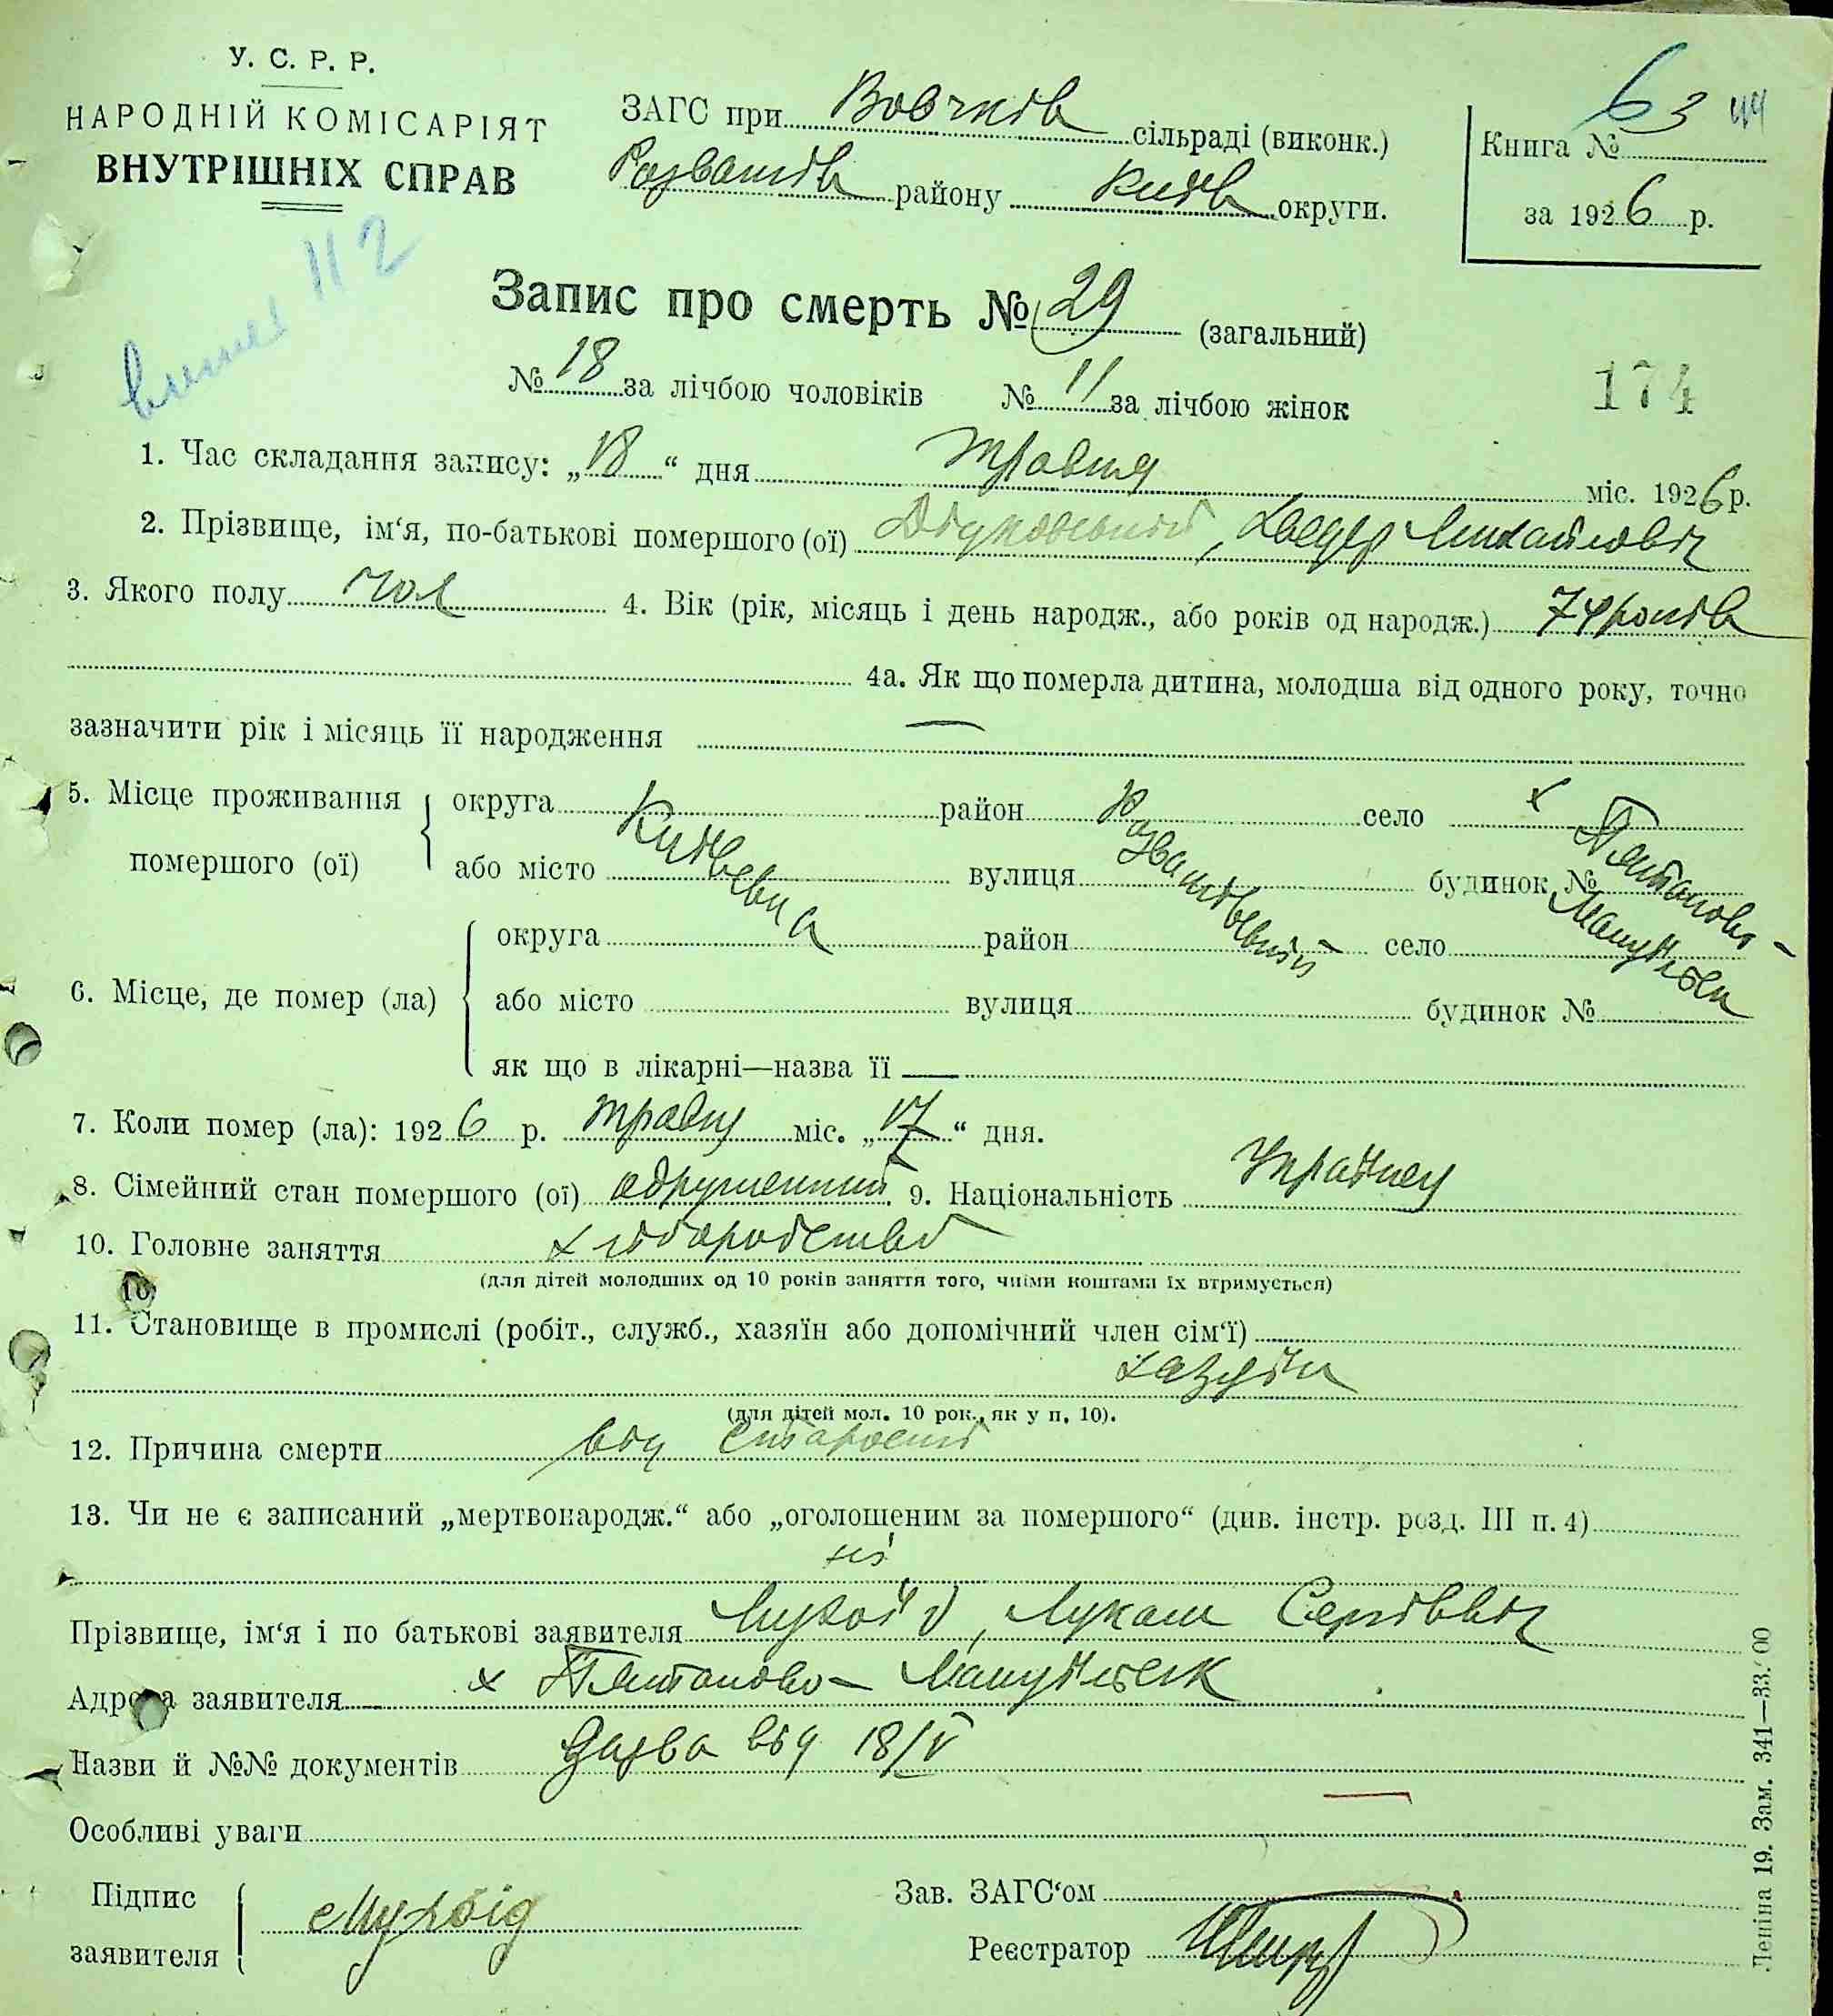 У. С. Р. Р.
НАРОДНІЙ КОМІСАРІЯТ
ВНУТРІШНІХ СПРАВ
ЗАГС при Вовчків сільраді (виконк.)
Розважів району Київ округи.
Книга № 63 44
за 1926 р.
112
Запис про смерть № 29 (загальний)
№ 18 за лічбою чоловіків № 11 за лічбою жінок
174
1. Час складання запису: „18“ дня травня міс. 1926 р.
2. Прізвище, ім'я, по-батькові помершого (ої) Дідковський, Хведер Михайлович
3. Якого полу чол 4. Вік (рік, місяць і день народж., або років од народж.) 74 років
4а. Як що померла дитина, молодша від одного року, точно
зазначити рік і місяць її народження —
5. Місце проживання помершого (ої) округа Київська район Розважівський село х П'ятаково-Мануїльськ
або місто вулиця будинок №
6. Місце, де помер (ла) округа район село
або місто вулиця будинок №
як що в лікарні—назва її —
7. Коли помер (ла): 1926 р. травня міс. „17“ дня.
8. Сімейний стан помершого (ої) одружений 9. Національність Українец
10. Головне заняття хліборобство
(для дітей молодших од 10 років заняття того, чиїми коштами їх втримується)
10
11. Становище в промислі (робіт., служб., хазяїн або допомічний член сім'ї)
хазяїн
(для дітей мол. 10 рок., як у п. 10).
12. Причина смерти від старости
13. Чи не є записаний „мертвонародж.“ або „оголошеним за помершого“ (див. інстр. розд. III п. 4)
ні
Прізвище, ім'я і по батькові заявителя Лукаш Сергіввіч
Адреса заявителя х П'ятаково-Мануїльськ
Назви й №№ документів Заява від 18/V
Особливі уваги
Підпис заявителя
Зав. ЗАГС'ом
Реєстратор
Леніна 19. Зам. 341—33.00